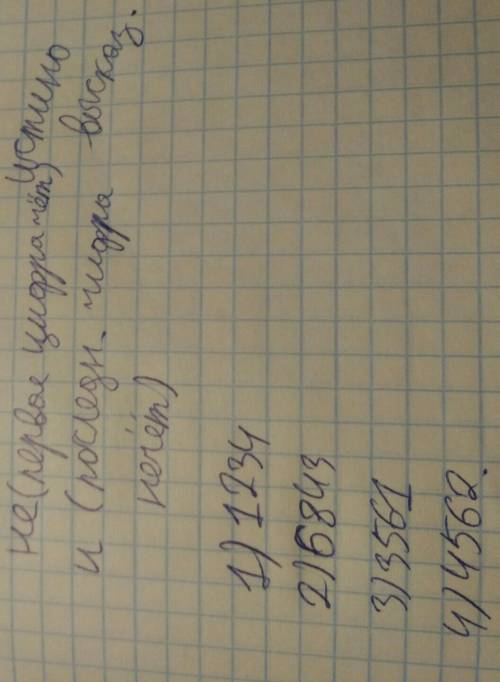 не(первое цифра чёт) истино
и (последн. цифра высказ.
нечёт)
1) 1234
2) 6843
3) 3561
4) 4562.